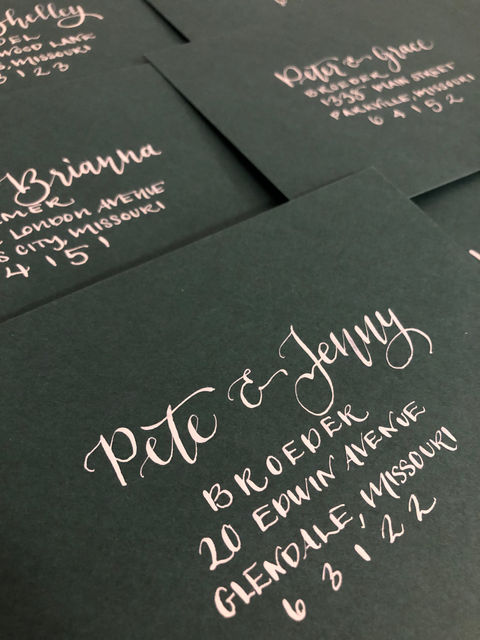 Shelley
WOOD LANE
MISSOURI
3 1 2 3
Peter & Grace
BROEDER
1338 MAIN STREET
PARKVILLE, MISSOURI
6 4 1 5 2
Brianna
LONDON AVENUE
CITY, MISSOURI
4 1 5 1
Pete & Jenny
BROEDER
20 EDWIN AVENUE
GLENDALE, MISSOURI
6 3 1 2 2